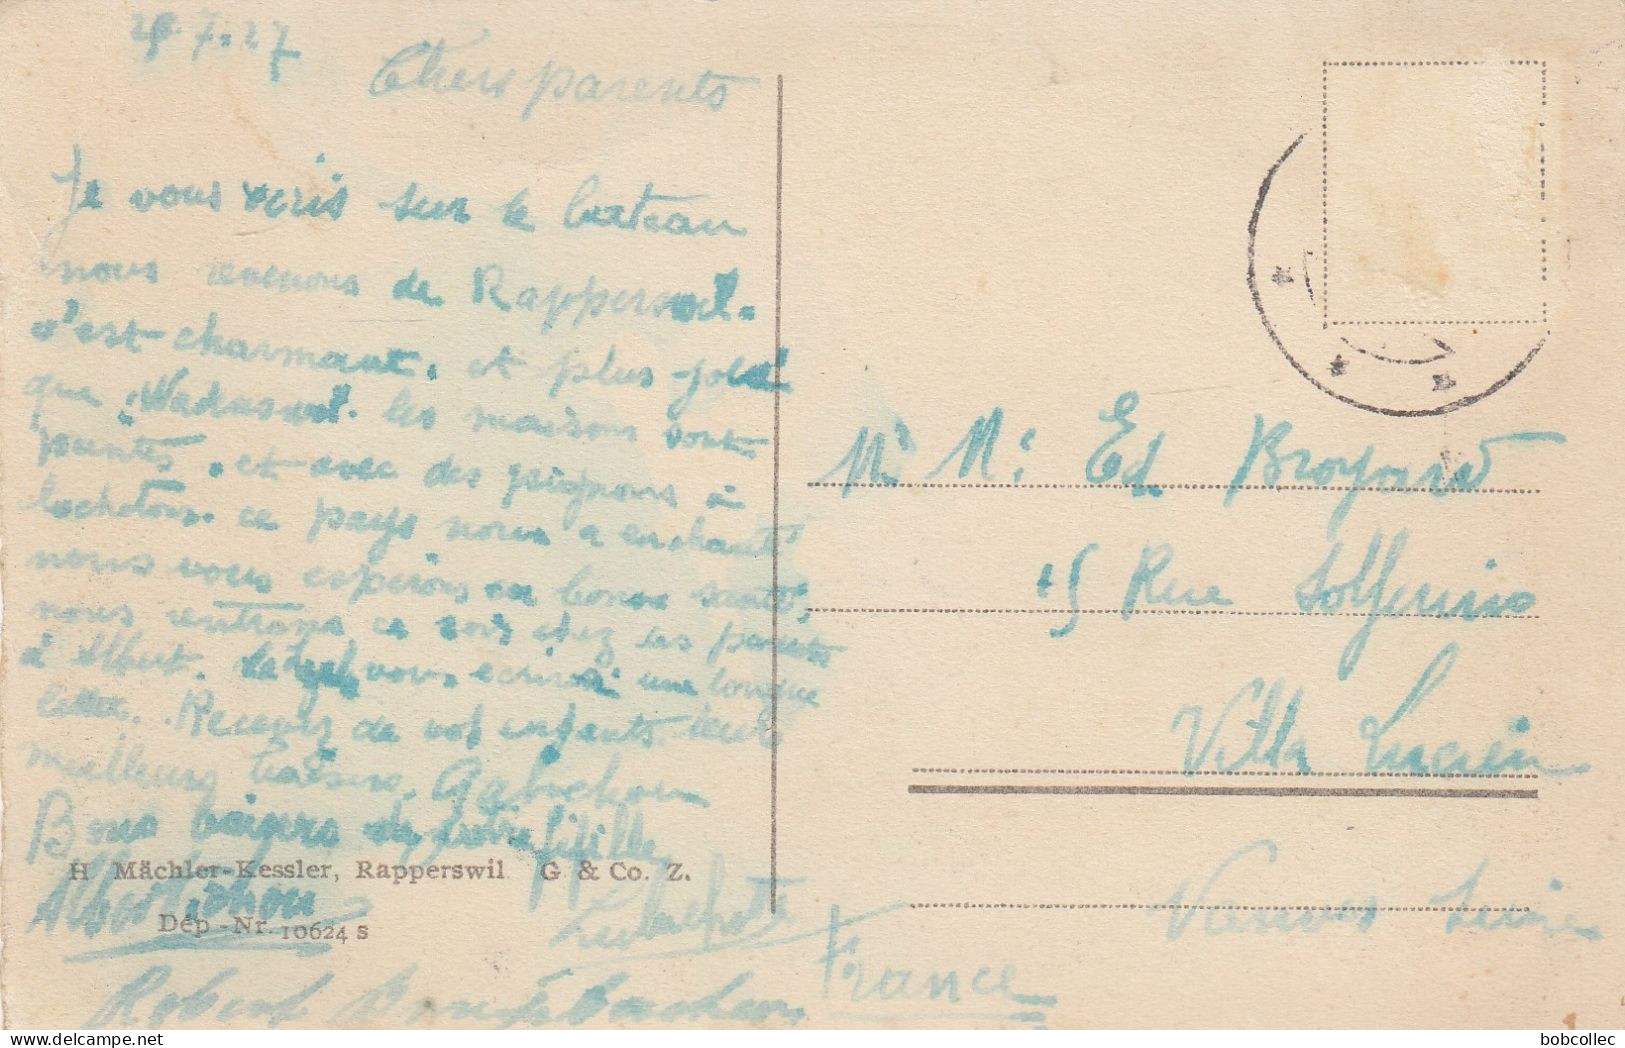 7.27
Chers parents
Je vous ecris sur le bateau
nous revenons de Rapperswil.
c'est charmant. et plus joli
que les maisons sont
peintes. et avec des pignons à
clochetons. ce pays nous a enchanté
nous vous esperons en bonne santé,
nous rentrons ce soir chez les parents
à Albert. vous ecrira une longue
lettre. Recevez de vos enfants leurs
meilleurs baisers.
Bons baisers de votre
H Mächler-Kessler, Rapperswil G & Co. Z.
Dép-Nr. 10624 s
Robert
M. Mr Ed Broyard
15 Rue Solferino
Villa Lucien
Vanves Seine
France
bobcollec